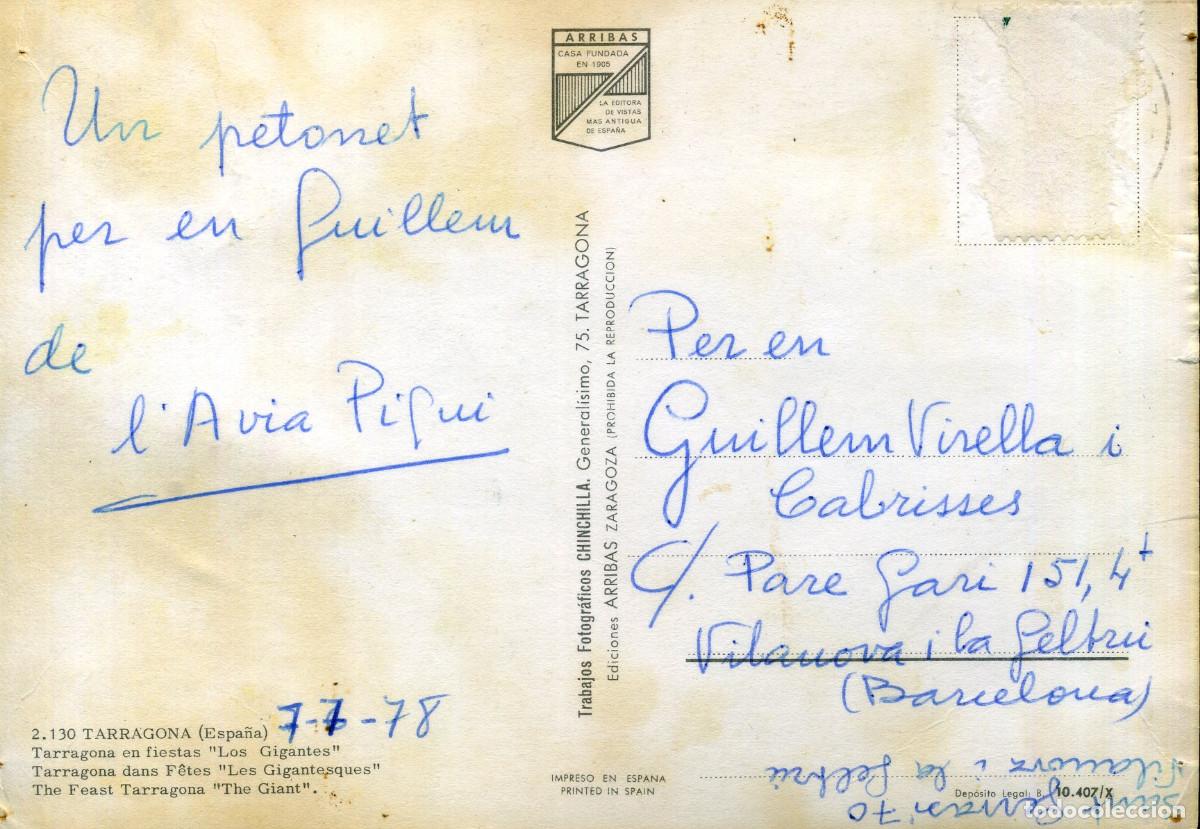 Un petonet
per en Guillem
de
l'Avia Pigui
7-7-78
2.130 TARRAGONA (España)
Tarragona en fiestas "Los Gigantes"
Tarragona dans Fêtes "Les Gigantesques"
The Feast Tarragona "The Giant".
ARRIBAS
CASA FUNDADA
EN 1905
LA EDITORA
DE VISTAS
MAS ANTIGUA
DE ESPAÑA
Trabajos Fotográficos CHINCHILLA. Generalísimo, 75. TARRAGONA
Ediciones ARRIBAS ZARAGOZA (PROHIBIDA LA REPRODUCCION)
IMPRESO EN ESPAÑA
PRINTED IN SPAIN
Per en
Guillem Virella i
Cabrisses
C/. Pare Garí 151, 4t
Vilanova i la Geltrú
(Barcelona)
Depósito Legal: B. 10.407/X
Sant 70
Vilanova i la Geltrú
todocoleccion